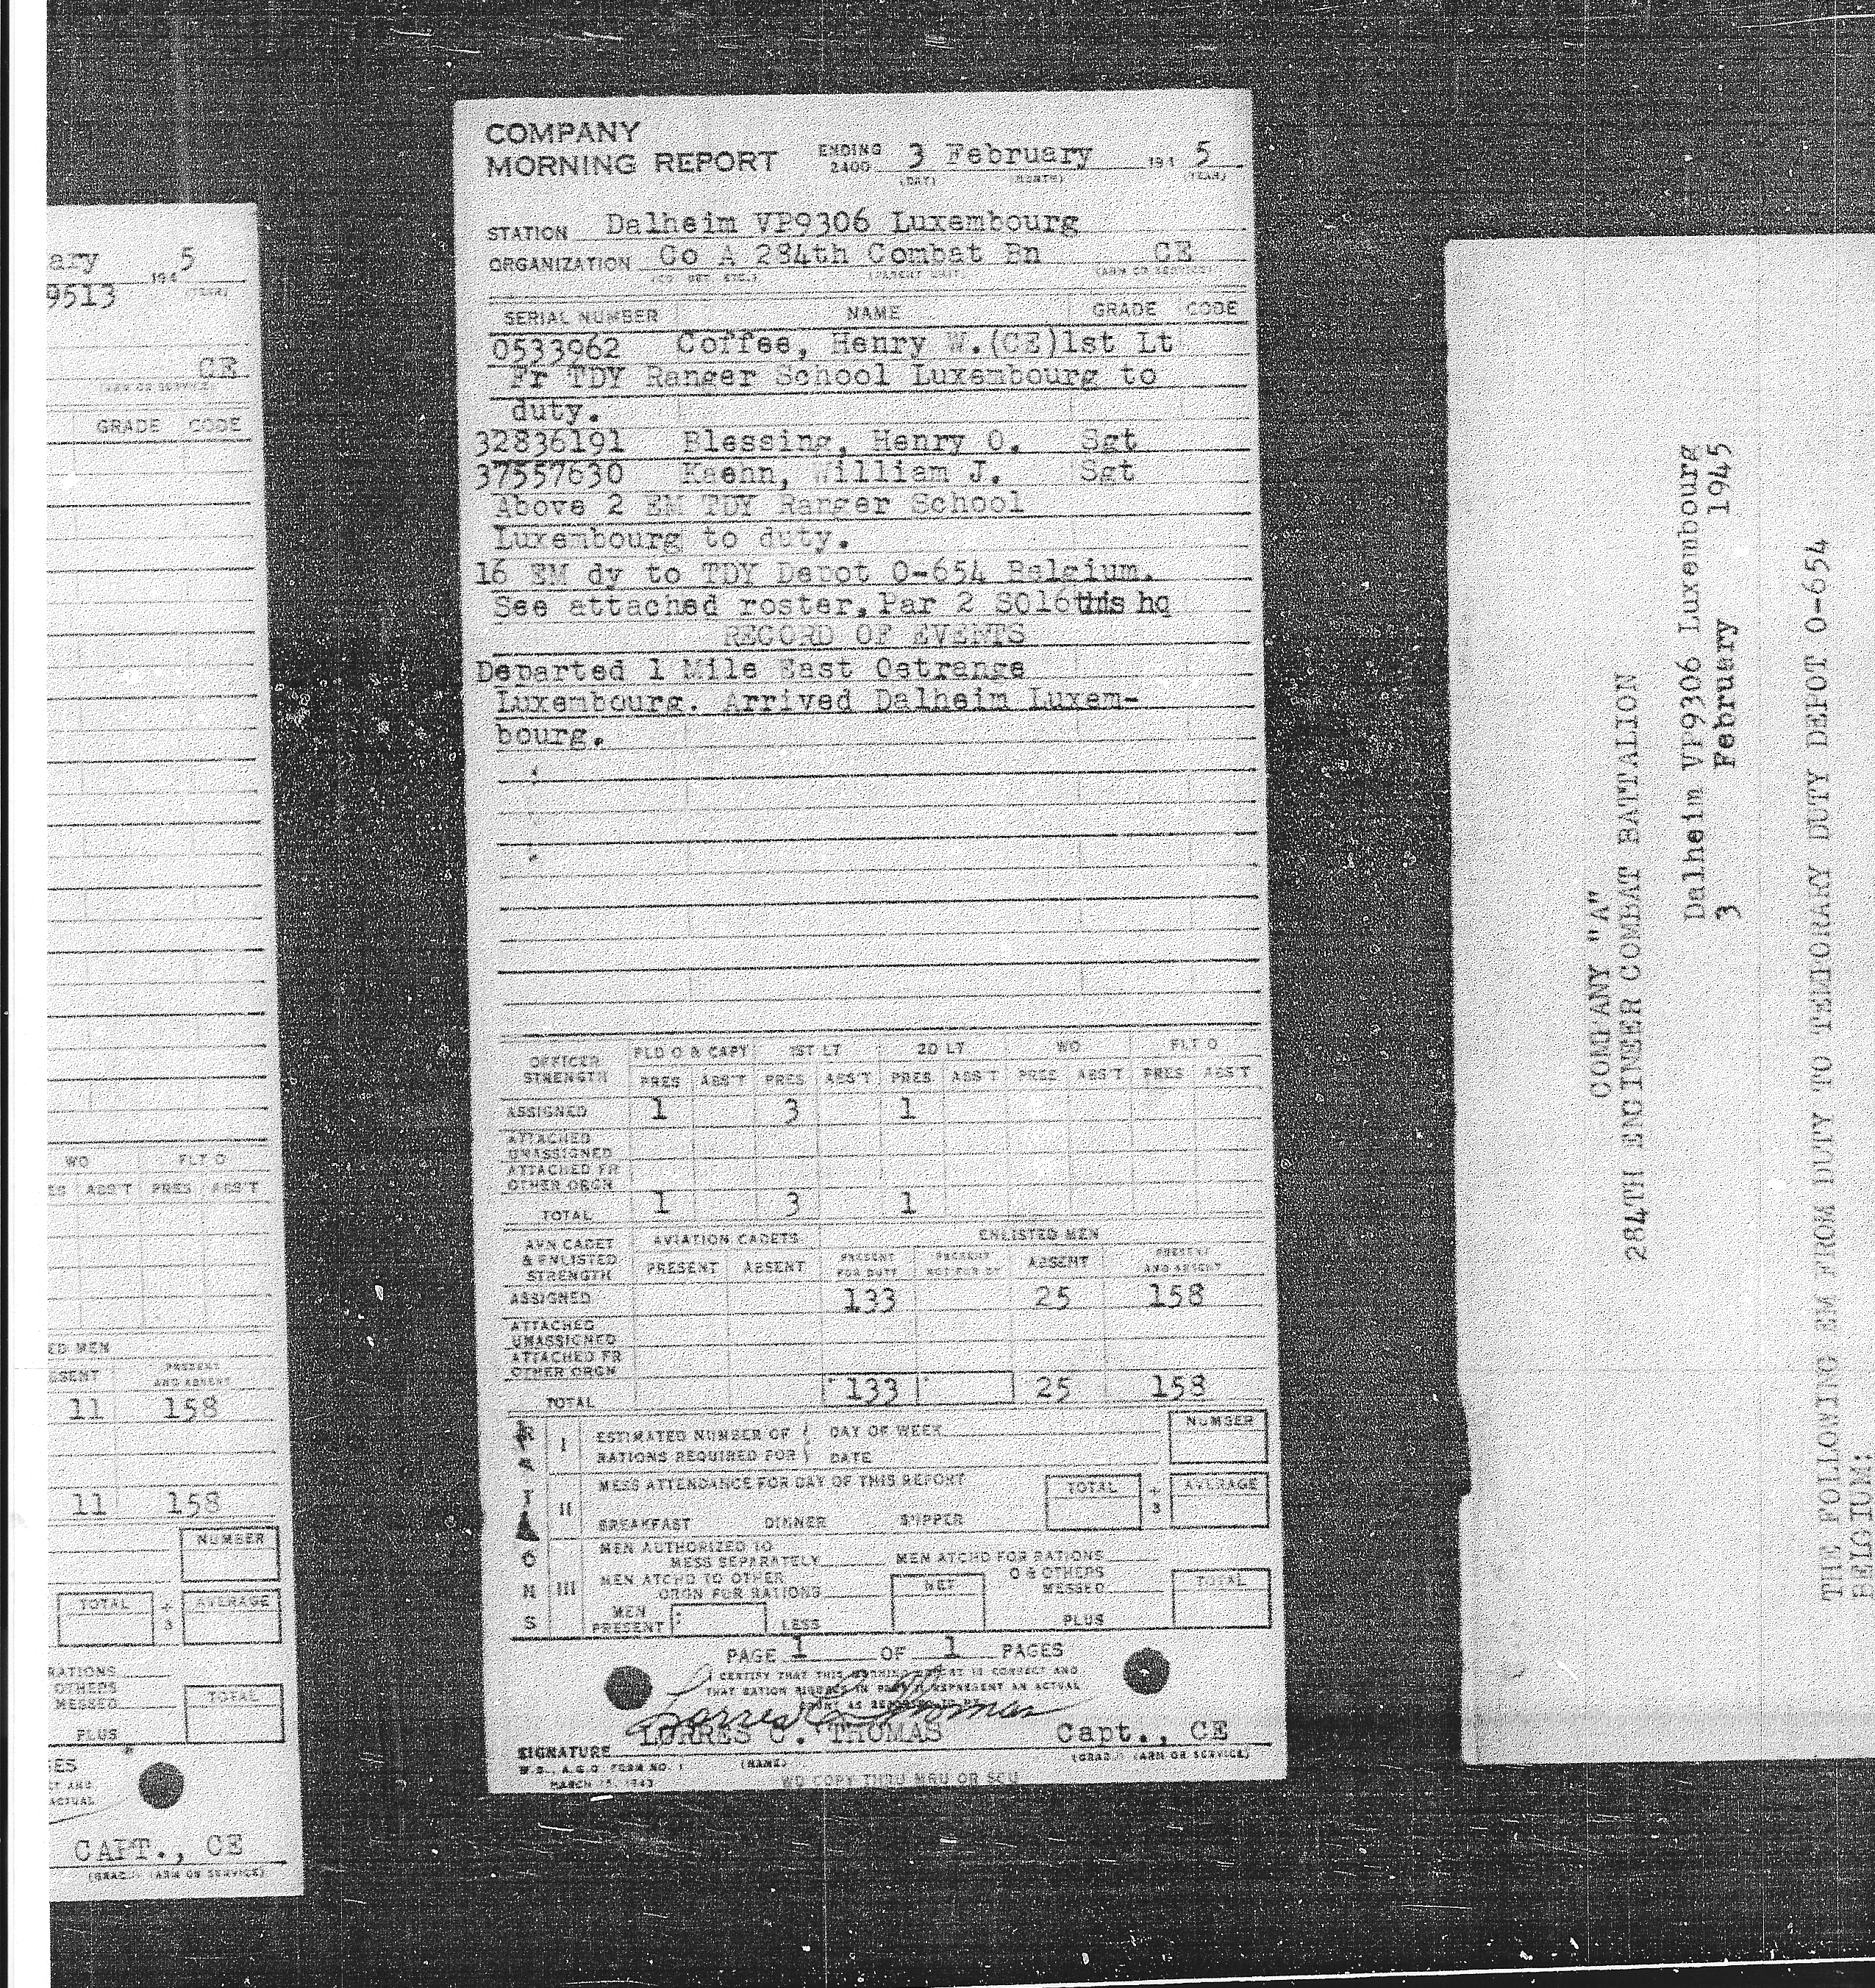 ary 194 5
9513 (YEAR)
CE
(ARM OR SERVICE)
GRADE CODE
WO FLT O
ES ABS'T PRES ABS'T
ED MEN
SENT PRESENT AND ABSENT
11 158
11 158
NUMBER
TOTAL ÷ 3 AVERAGE
RATIONS
OTHERS
MESSED TOTAL
PLUS
ES
CT AND
ACTUAL
CAPT., CE
(GRADE) (ARM OR SERVICE)
COMPANY
MORNING REPORT ENDING 2400 3 February 194 5
(DAY) (MONTH) (YEAR)
STATION Dalheim VP9306 Luxembourg
ORGANIZATION Co A 284th Combat Bn CE
(CO DET. ETC.) (PARENT UNIT) (ARM OR SERVICE)
SERIAL NUMBER NAME GRADE CODE
0533962 Coffee, Henry W.(CE)1st Lt
Fr TDY Ranger School Luxembourg to
duty.
32836191 Blessing, Henry O. Sgt
37557630 Kaehn, William J. Sgt
Above 2 EM TDY Ranger School
Luxembourg to duty.
16 EM dy to TDY Depot O-654 Belgium.
See attached roster, Par 2 SO16 this hq
RECORD OF EVENTS
Departed 1 Mile East Ostrange
Luxembourg. Arrived Dalheim Luxem-
bourg.
OFFICER STRENGTH FLD O & CAPT 1ST LT 2D LT WO FLT O
PRES ABS'T PRES ABS'T PRES ABS'T PRES ABS'T PRES ABS'T
ASSIGNED 1 3 1
ATTACHED
UNASSIGNED
ATTACHED FR
OTHER ORGN
TOTAL 1 3 1
AVN CADET & ENLISTED STRENGTH AVIATION CADETS ENLISTED MEN
PRESENT ABSENT PRESENT FOR DUTY PRESENT NOT FOR DY ABSENT PRESENT AND ABSENT
ASSIGNED 133 25 158
ATTACHED
UNASSIGNED
ATTACHED FR
OTHER ORGN
TOTAL 133 25 158
RATIONS
I ESTIMATED NUMBER OF DAY OF WEEK NUMBER
RATIONS REQUIRED FOR DATE
II MESS ATTENDANCE FOR DAY OF THIS REPORT TOTAL ÷ 3 AVERAGE
BREAKFAST DINNER SUPPER
III MEN AUTHORIZED TO
MESS SEPARATELY MEN ATCHD FOR RATIONS
MEN ATCHD TO OTHER
ORGN FOR RATIONS NET O & OTHERS MESSED TOTAL
MEN PRESENT LESS PLUS
PAGE 1 OF 1 PAGES
I CERTIFY THAT THIS MORNING REPORT IS CORRECT AND
THAT RATION FIGURES IN PART III REPRESENT AN ACTUAL
COUNT AS REPORTED TO ME
Lorres C. Thomas
LORRES C. THOMAS Capt., CE
SIGNATURE (NAME) (GRADE) (ARM OR SERVICE)
W.D., A.G.O. FORM NO. 1
MARCH 15, 1943 WD COPY THRU MRU OR SCU
COMPANY "A"
284TH ENGINEER COMBAT BATTALION
Dalheim VP9306 Luxembourg
3 February 1945
THE FOLLOWING EM FROM DUTY TO TEMORARY DUTY DEPOT O-654
BELGIUM: